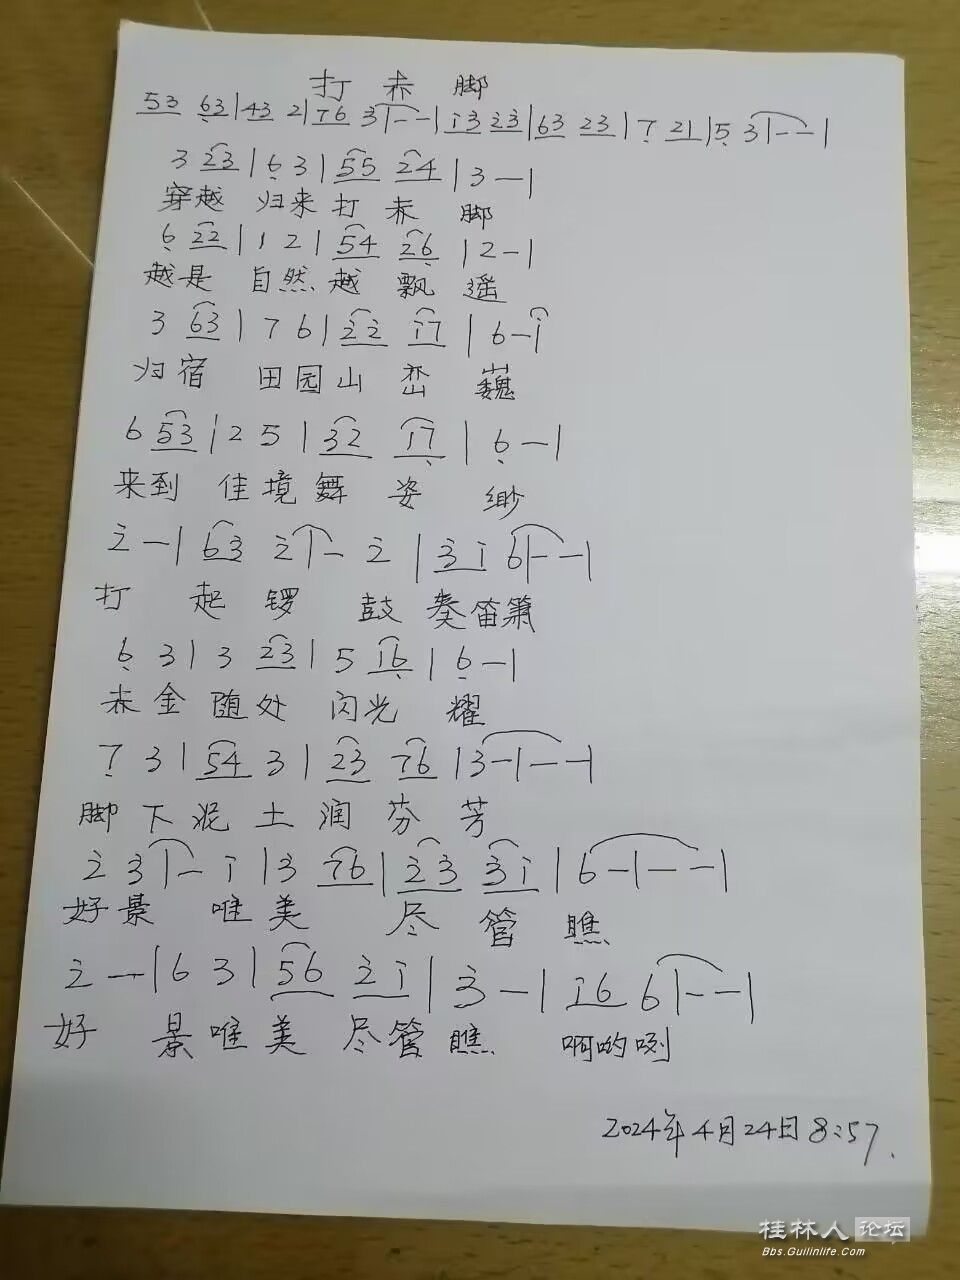 打赤脚
53 63|43 2|76 3|--|i3 23|63 23|7 21|5 3|--|
3 23|6 3|55 24|3-|
穿越 归来打赤脚
6 22|1 2|54 26|2-|
越是 自然越飘遥
3 63|7 6|22 i7|6-i
归宿 田园山峦巍
6 53|2 5|32 i7|6-|
来到 佳境舞姿缈
2-|63 2|- 2|3i 6|--|
打 起锣 鼓奏笛箫
6 3|3 23|5 i6|6-|
赤金随处闪光耀
7 3|54 3|23 76|3-|--|
脚下泥土润芬芳
2 3|- i|3 76|23 3i|6-|--|
好景 唯美 尽管瞧
2-|6 3|56 2i|3-|i6 6|--|
好 景唯美 尽管瞧 啊哟咧
2024年4月24日8:57.
桂林人论坛
Bbs.Guilinlife.Com